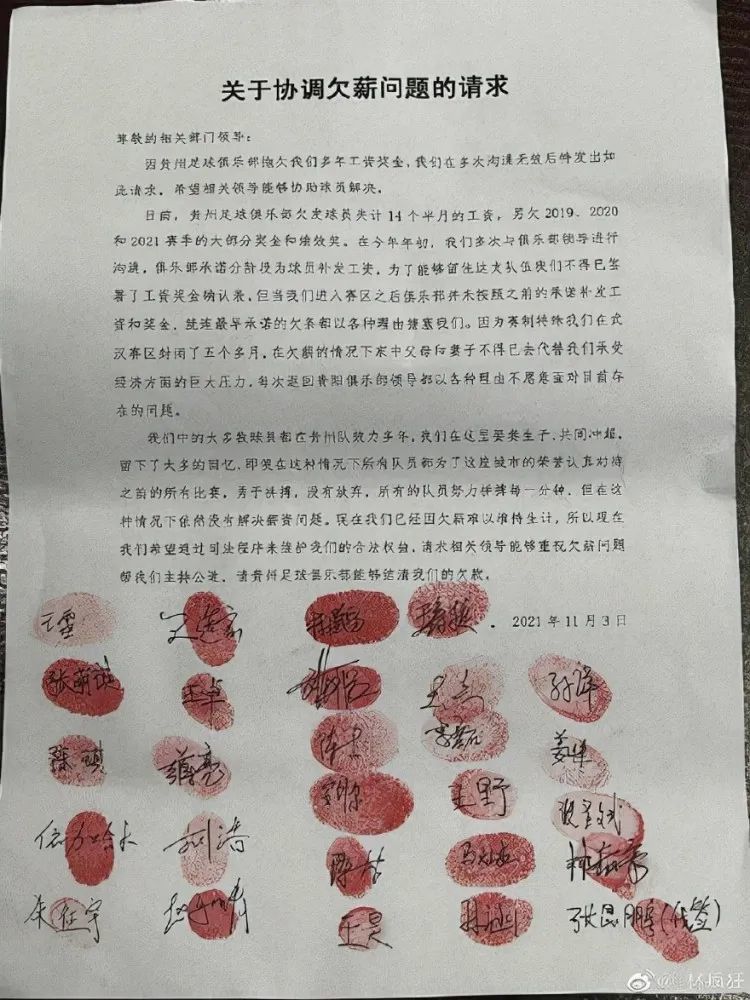 关于协调欠薪问题的请求
尊敬的相关部门领导:
因贵州足球俱乐部拖欠我们多年工资奖金,我们在多次沟通无效后特发出如
此请求。希望相关领导能够协助球员解决。
目前,贵州足球俱乐部欠发球员共计14个半月的工资,另欠2019、2020
和2021赛季的大部分奖金和绩效奖。在今年年初,我们多次与俱乐部领导进行
沟通,俱乐部承诺分阶段为球员补发工资,为了能够留住这支队伍我们不得已签
署了工资奖金确认表,但当我们进入赛区之后俱乐部并未按照之前的承诺补发工
资和奖金,就连最早承诺的欠条都以各种理由搪塞我们。因为赛制特殊我们在武
汉赛区封闭了五个多月,在欠薪的情况下家中父母和妻子不得已去代替我们承受
经济方面的巨大压力,每次返回贵阳俱乐部领导都以各种理由不愿意面对目前存
在的问题。
我们中的大多数球员都在贵州队效力多年,我们在这里娶妻生子、共同冲超,
留下了太多的回忆,即使在这种情况下所有队员都为了这座城市的荣誉认真对待
之前的所有比赛,勇于拼搏,没有放弃,所有的队员努力拼搏每一分钟,但在这
种情况下依然没有解决薪资问题。现在我们已经因欠薪难以维持生计,所以现在
我们希望通过司法程序来维护我们的合法权益,请求相关领导能够重视欠薪问题
帮我们主持公道,请贵州足球俱乐部能够结清我们的欠款。
2021年11月3日
张萌琪 王卓
陈琪
王野
刘浩
朱征宇 王昊 张昆鹏(代签)